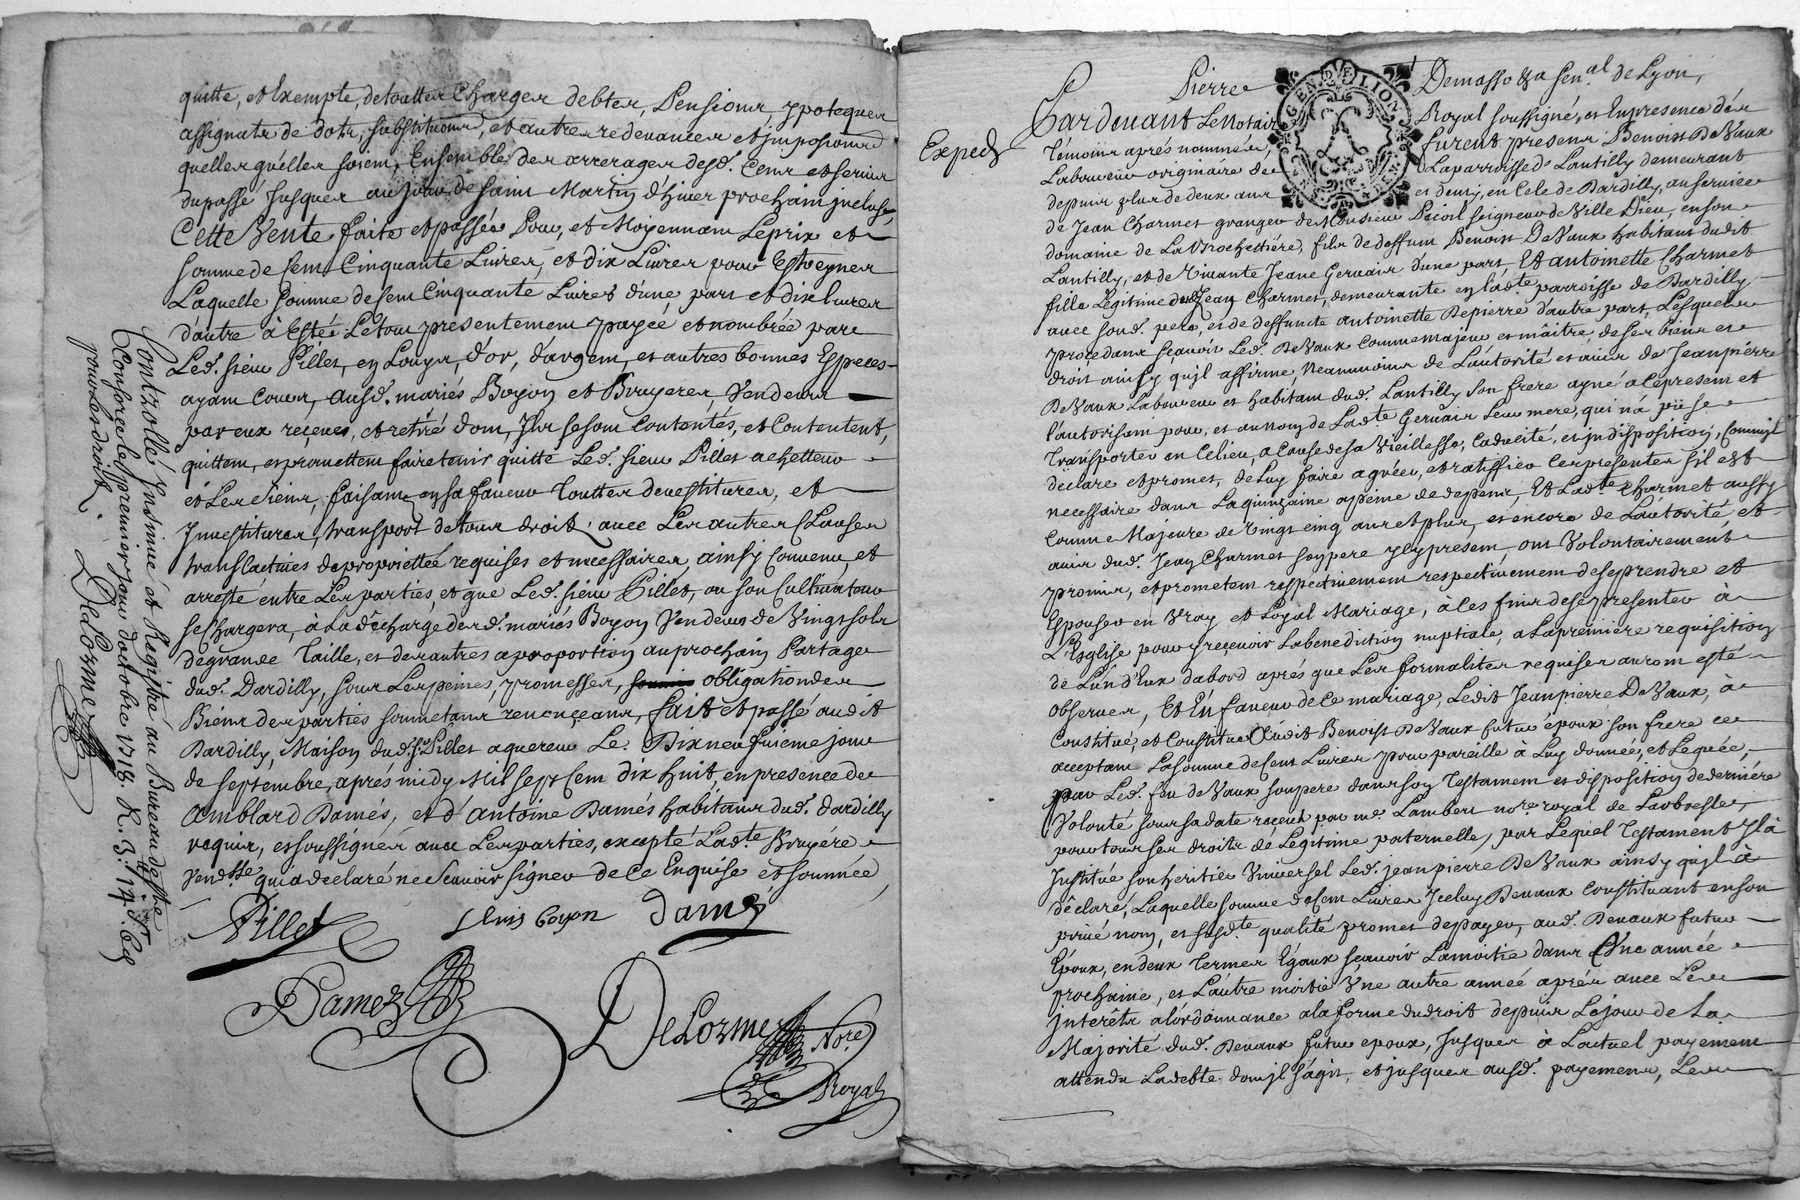 quitte, et Exempte, detouttes Charges debtes, Pensions, ypoteques
assignats de dots, substitutions, et autres redevances et impositions
quelles quelles soient, Ensemble des arrerages desd. Cens et servis
du passé Jusques au jour de saint Martin d'hiver prochain incluse,
Cette Vente faite et passée Pour, et Moyennant Le prix et
somme de cent Cinquante Livres, et dix Livres pour Estreynes
Laquelle somme de cent Cinquante Livres d'une part et dix livres
d'autre à Esté Le tout presentement payée et nombrée par
Led. sieur Pillet, en Louys, d'or, d'argent, et autres bonnes Especes
ayant Cours, ausd. mariés Boyon et Bruyeres, Vendeurs
par eux reçeues, et retiré dont, Ils se sont Contentés, et Contentent,
quittent, et promettent faire tenir quitte Led. sieur Pillet achetteur
et Les siens, faisant en sa faveur Touttes devestitures, et
Investitures, transport de tous droits, avec Les autres Clauses
translatives de propriettée requises et necessaires, ainsy Convenu, et
arresté entre Les parties, et que Led. sieur Pillet, ou son Cultivateur
se Chargera, à La décharge desd. mariés Boyon Vendeurs de Vingt sols
de grande Taille, et des autres a proportion au prochain Partage
dud. Dardilly, sous Les peines, promesses, obligation des
Biens des parties soumetans renonçeans, fait et passé audit
Dardilly, Maison dud. Sr Pillet aquereur Le Dixneufvieme jour
de septembre, aprés midy Mil sept Cent dix huit, en presence de
Amblard Damés, et d'Antoine Damés habitans dud. dardilly
requis, et soussignés avec Les parties, excepté Lad.te Bruyére
vend.sse qui a declaré ne Scavoir signer de Ce Enquise et sommée
Pillet Louis boyon Damé
Damez
DeLorme No.re
Royal
Controllé Insinué et Registré au Bureau de
Conforce le premier jour d'octobre 1718. R.
pour Les droits.
DeLorme
Pierre Demasso &a Sen.al de Lyon,
Expedé
Pardevant Le Notaire Royal soussigné, et En presence des
Témoins aprés nommés, furent presens Benoist De Vaux
Laboureur originaire de La parroisse de Lantilly demeurant
depuis plus de deux ans et demy, en Cele de Dardilly, au service
de Jean Charmet granger de Monsieur seigneur de Ville Dieu, en son
domaine de La Brochettiére, fils de deffunt Benoist De Vaux habitant dudit
Lantilly, et de Vivante Jeane Gervais d'une part, Et antoinette Charmet
fille Legitime de Jean Charmet, demeurante en lad.te parroisse de Dardilly
avec sond. pere, et de deffuncte antoinette Depierre d'autre part, Lesquels
procedans sçavoir Led. De Vaux comme majeur et maître, de ses biens et
droits ainsy qu'il affirme, Neanmoins de L'autorité et avis de Jeanpierre
De Vaux Laboureur et habitant dud. Lantilly son frere ayné a Ce present et
l'autorisant pour, et au nom de Lad.te Gervais Leur mere, qui n'a pû se
Transporter en Ce lieu, a Cause de sa Vieillesse, Caducité, et indisposition, Comme il
declare et promet, de Luy faire agréer, et ratiffier Les presentes s'il est
necessaire dans La quinzaine a peine de depens, Et Lad.te Charmet aussy
comme Majeure de Vingt cinq ans et plus, et encore de L'autorité et
avis dud. Jean Charmet son pere Icy present, ont Volontairement
promis, et prometent respectivement respectivement de se prendre et
Epouser en Vray et Loyal Mariage, à Ces fins de se presenter à
L'Esglise pour y reçevoir La benediction nuptiale, a La premiére requisition
de L'un d'Eux d'abord aprés que Les formalites requises auront esté
observées, Et En faveur de Ce mariage, Ledit Jeanpierre De Vaux, à
Constitué, et Constitue Audit Benoist De Vaux futur époux son frere cy
acceptant La somme de Cent Livres pour pareille a Luy donnée, et Leguée,
par Led. feu de Vaux son pere dans son Testament et disposition de derniére
Volonté sous sa date reçeu par me. Lambert no.re royal de Larbresle,
pour tous ses droits de Legitime paternelle, par Lequel Testament Il à
Institué son heritier Universel Led. jeanpierre De Vaux ainsy qu'il à
déclaré, Laquelle somme de Cent Livres Iceluy Devaux constituant en son
privé nom, et susd.te qualité promet de payer, aud. Devaux futur
Epoux, en deux Termes Egaux sçavoir La moitie dans Une année
prochaine, et L'autre moitié Une autre année aprés avec Les
interêts a L'ordonnance a la forme du droit depuis Le jour de La
Majorité dud. Devaux futur epoux, Jusques à L'actuel payement
attendu La debte dont il s'agit, et jusques ausd. payemens, Les